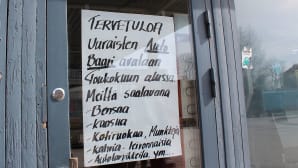 TERVETULOA
Uuraisten Auto
Baari avataan
Toukokuun alussa
Meiltä saatavana
-Bensaa
-Kaasua
-Kotiruokaa, Munkkeja
-Kahvia - Virvonnaisia
-Autotarvikkeita, ym.